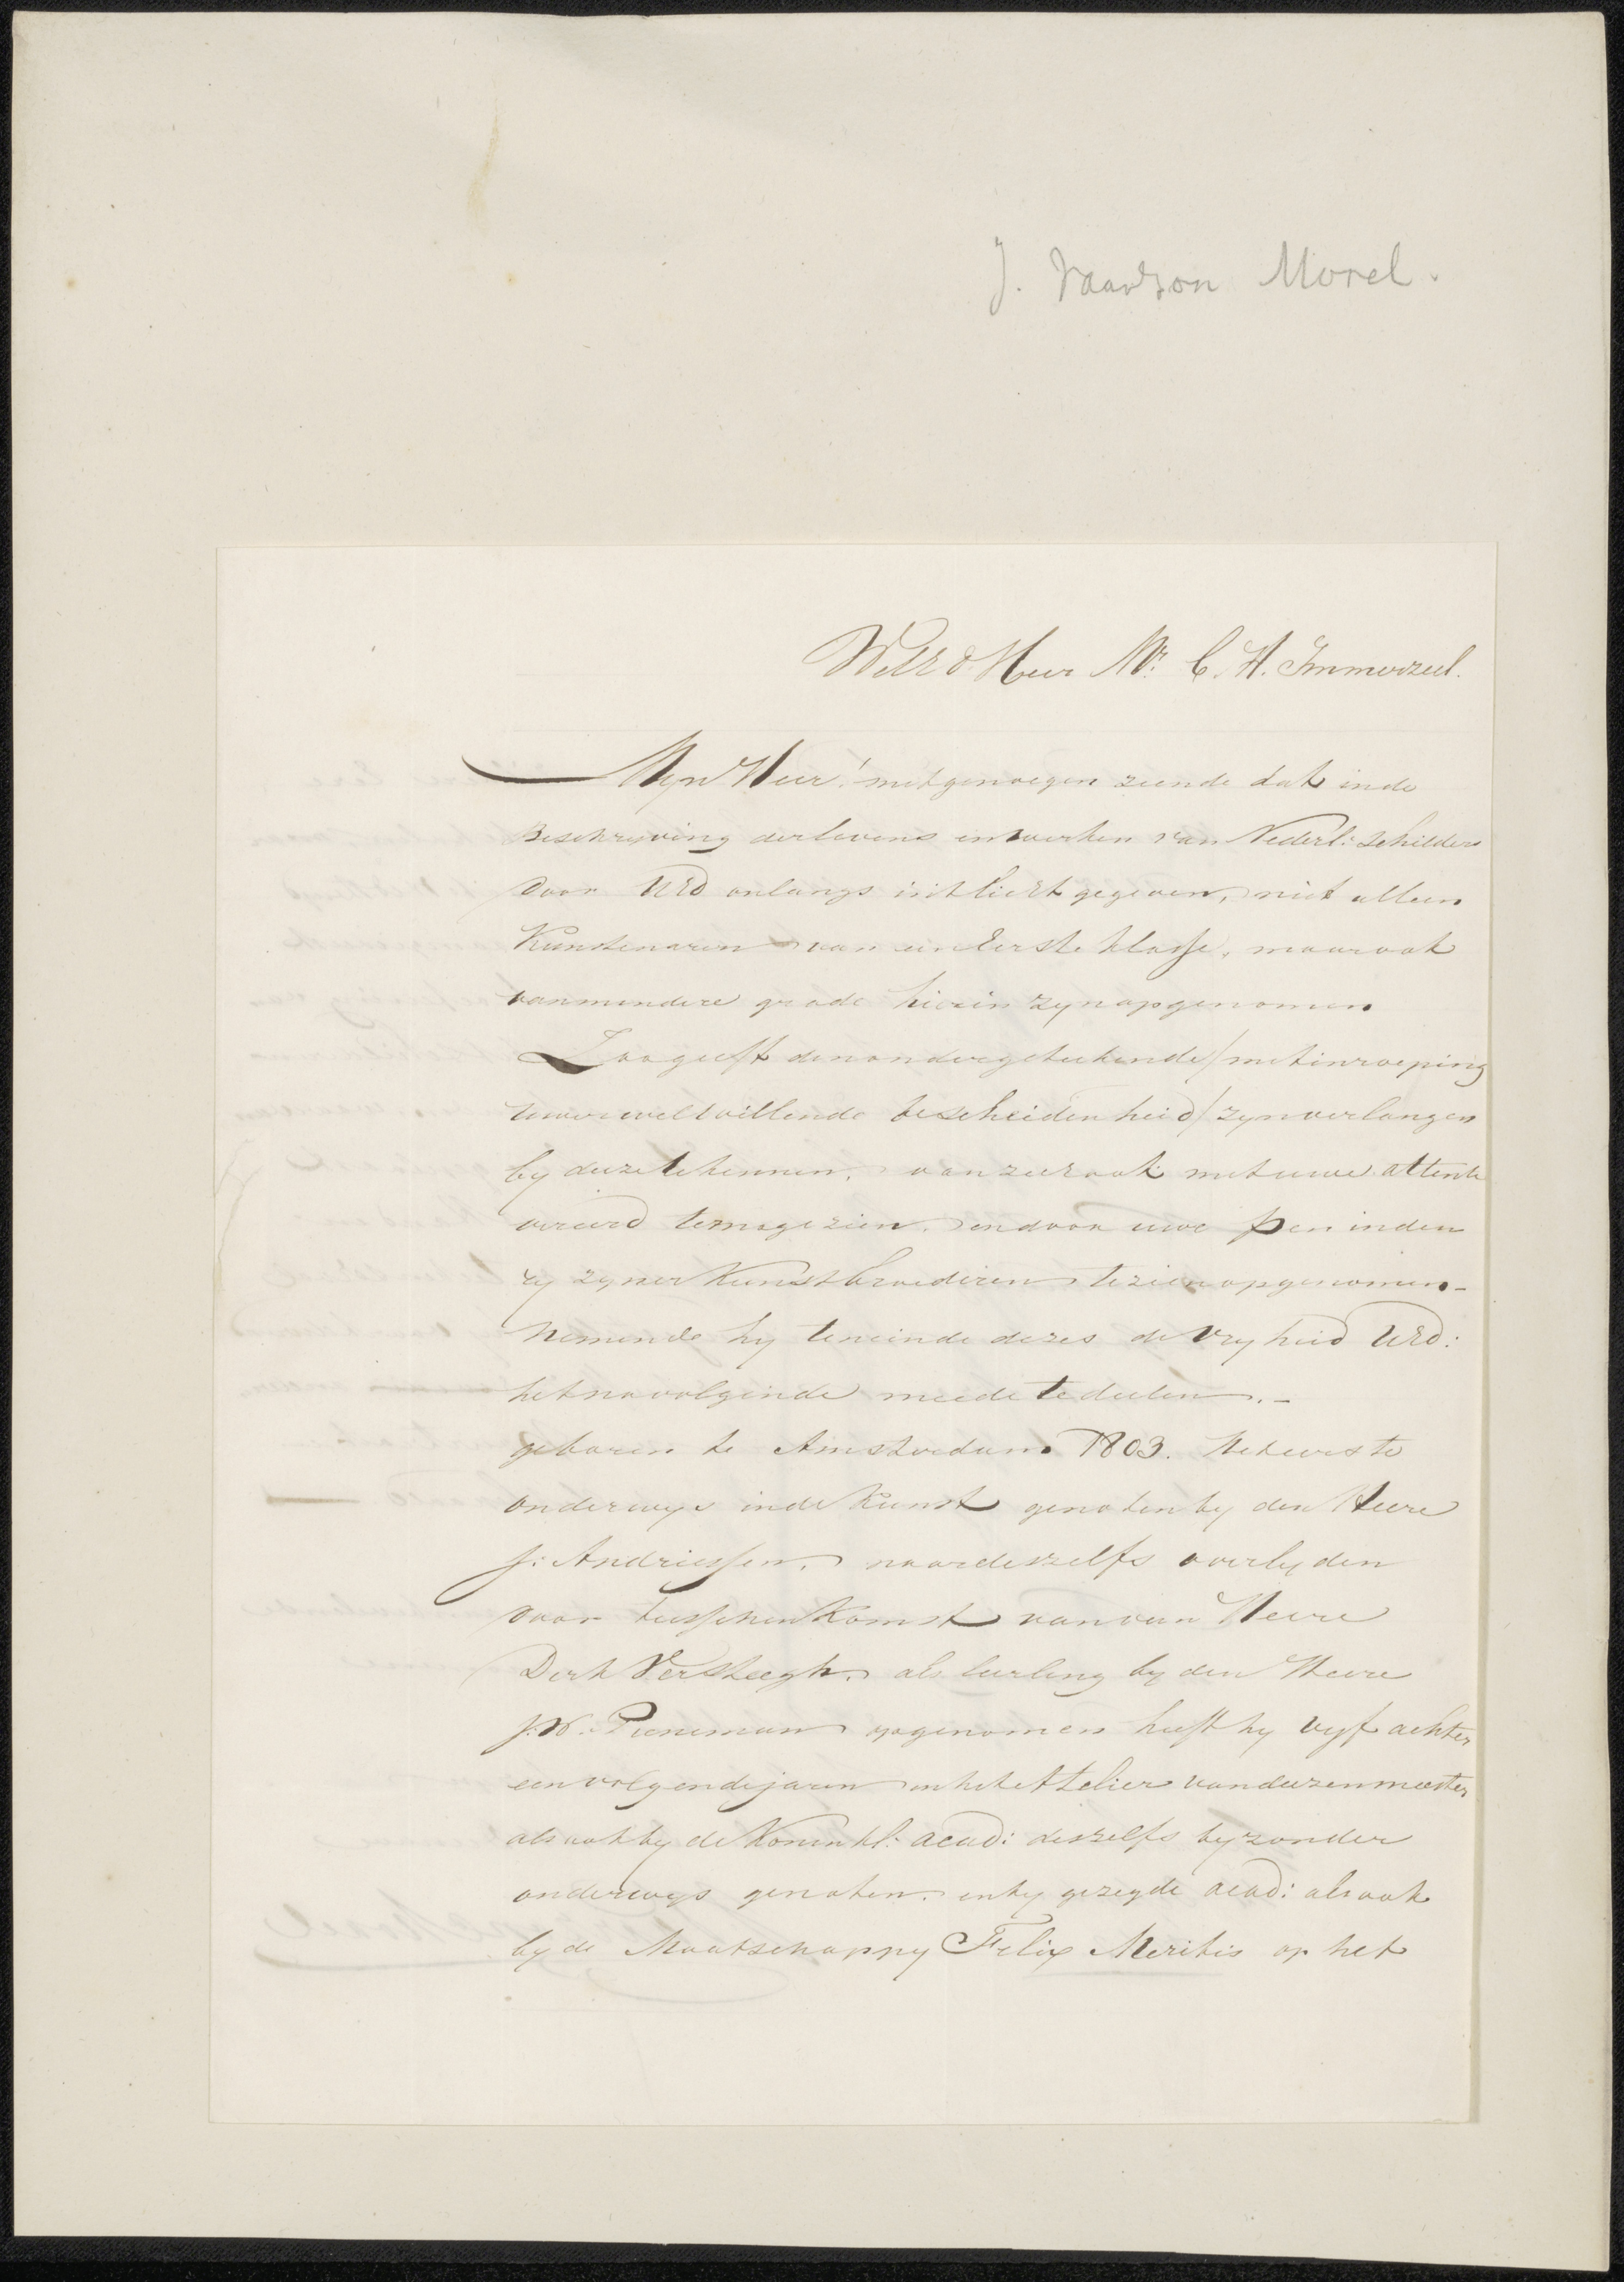 J. Vaarzon Morel.
WelEd Heer Mr. C. H. Immerzeel.
Myn Heer! met genoegen ziende dat in de
Beschryving der levens en werken van Nederl: Schilders
door UEd onlangs in 't licht gegeven, niet alleen
Kunstenaren van een Eerste klasse, maar ook
van mindere grade hierin zyn opgenomen
Zoo geeft den ondergeteekende / met inroeping
uwer welwillende bescheidenheid / zyn verlangen
by deeze te kennen, van zeer ook met uwe attentie
vereerd te mogen zien, en door uwe pen in den
ry zyner Kunstbroederen te zien opgenomen -
Nemende hy ten einde dezes de vryheid UEd:
het navolgende meede te deelen. -
geboren te Amsterdam 1803. het eerste
onderwys in de Kunst genoten by den Heere
J: Andriessen, na deszelfs overlyden
door tusschenkomst van den Heere
Dirk Versteegh, als leerling by den Heere
J. W. Pieneman opgenomen heeft hy vyf achter
een volgende jaren in het attelier van deezen meester
als ook by de Koninkl: acad: deszelfs byzonder
onderwys genoten, en by gezegde acad: als ook
by de Maatschappy Felix Meritis op het